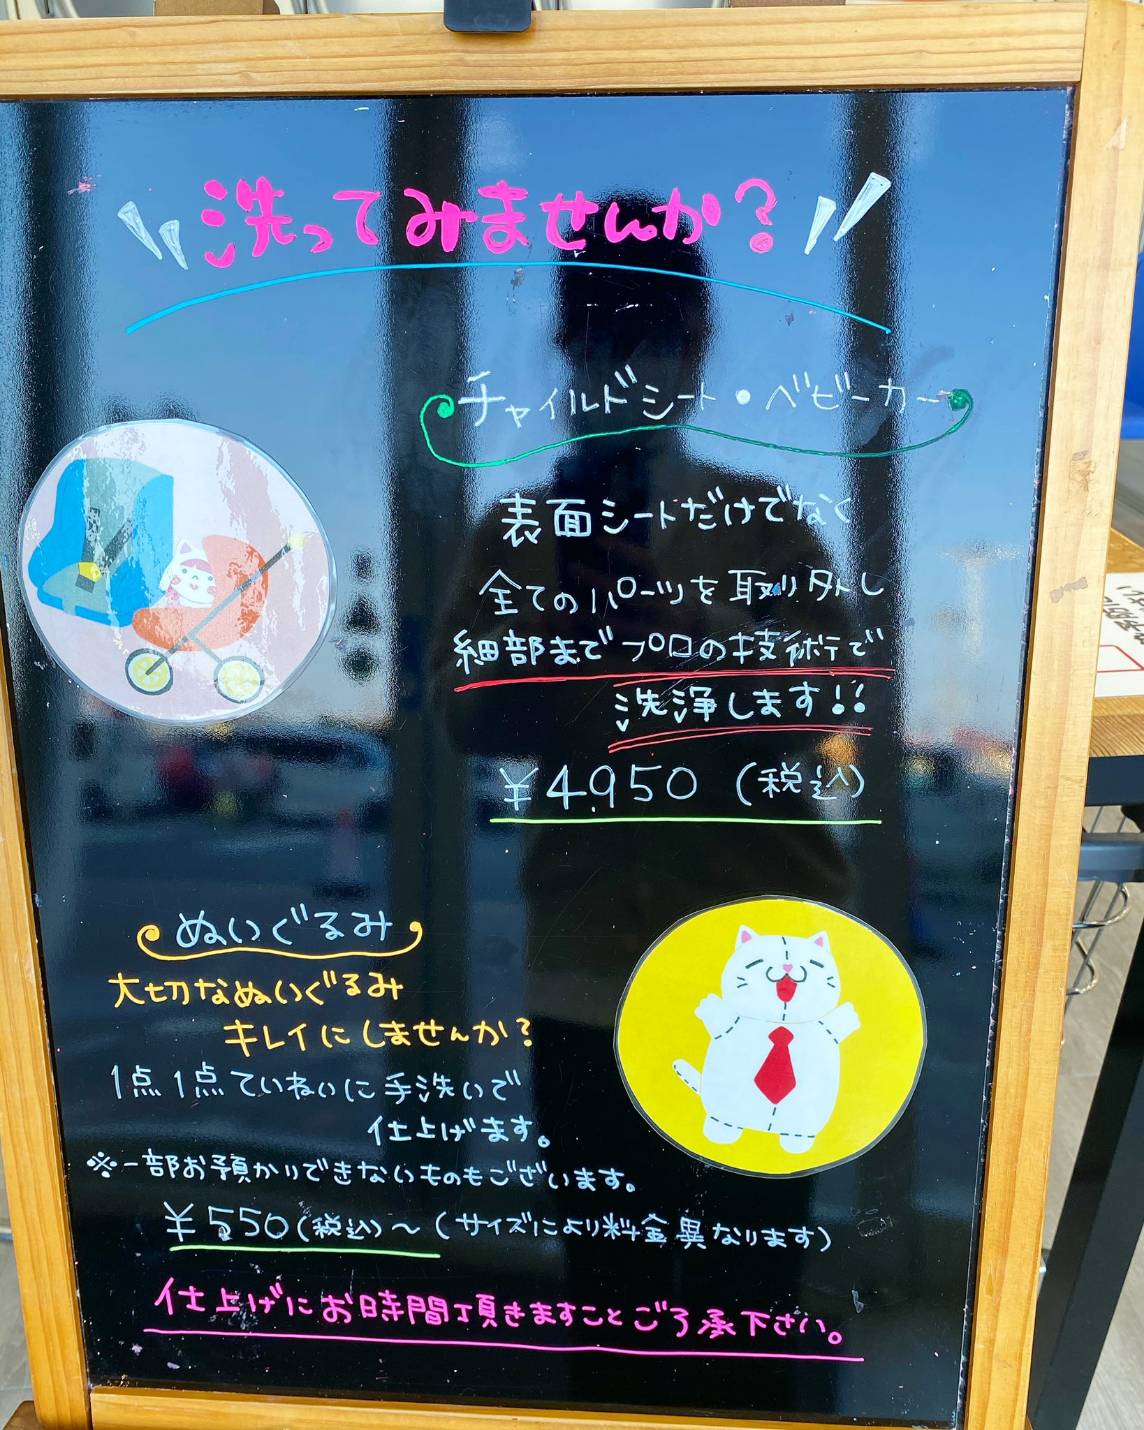 洗ってみませんか?
チャイルドシート・ベビーカー
表面シートだけでなく
全てのパーツを取り外し
細部までプロの技術で
洗浄します!!
¥4,950(税込)
ぬいぐるみ
大切なぬいぐるみ
キレイにしませんか?
1点1点ていねいに手洗いで
仕上げます。
※一部お預かりできないものもございます。
¥550(税込)〜(サイズにより料金異なります)
仕上げにお時間頂きますことご了承下さい。